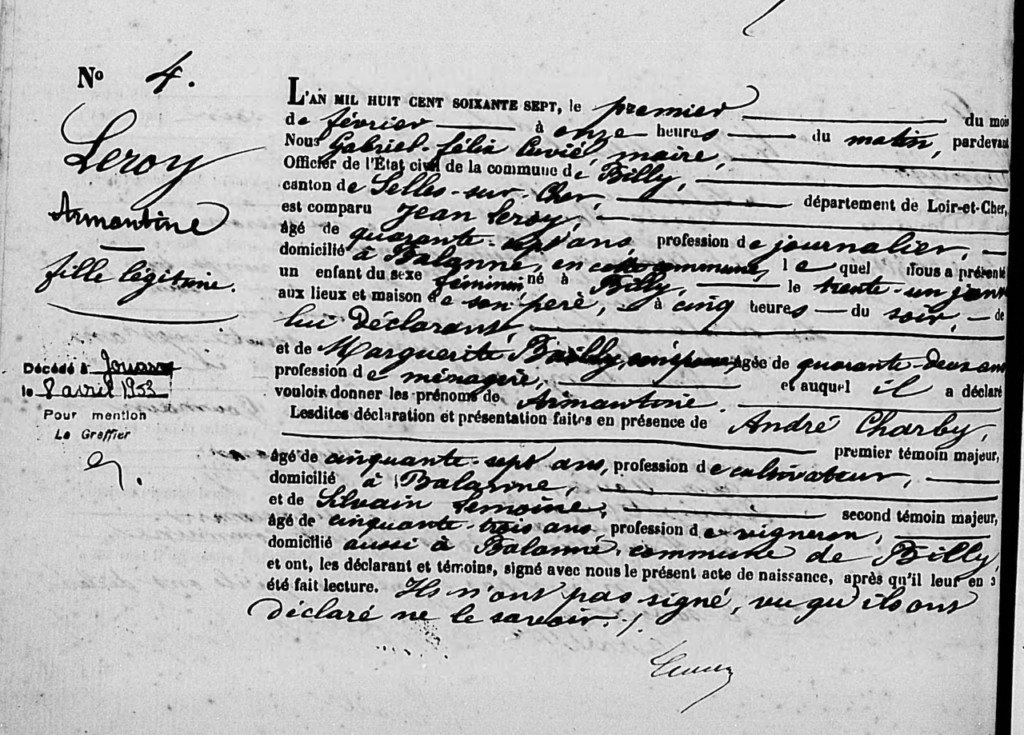 No 4.
Leroy
Armantine
fille légitime.
Décédé à
le 8 avril 1953
Pour mention
Le Greffier
L'AN MIL HUIT CENT SOIXANTE SEPT, le premier du mois
de février à onze heures du matin, pardevant
Nous Gabriel-félix maire,
Officier de l'État civil de la commune de Billy,
canton de Selles-sur-Cher, département de Loir-et-Cher,
est comparu Jean Leroy,
âgé de quarante-sept ans, profession de journalier,
domicilié à Balanne, en cette commune, lequel nous a présenté
un enfant du sexe féminin né à Billy, le trente-un janv
aux lieux et maison de son père, à cinq heures du soir, de
lui Déclarant,
et de Marguerite Bailly, âgée de quarante-deux ans
profession de ménagère, et auquel il a déclaré
vouloir donner les prénoms de Armantine.
Lesdites déclaration et présentation faites en présence de André Charby,
premier témoin majeur,
âgé de cinquante-sept ans, profession de cultivateur,
domicilié à Balanne,
et de Silvain Lemoine, second témoin majeur,
âgé de cinquante-trois ans, profession de vigneron,
domicilié aussi à Balanne, commune de Billy
et ont, les déclarant et témoins, signé avec nous le présent acte de naissance, après qu'il leur en a
été fait lecture. Ils n'ont pas signé, vu qu'ils ont
déclaré ne le savoir.